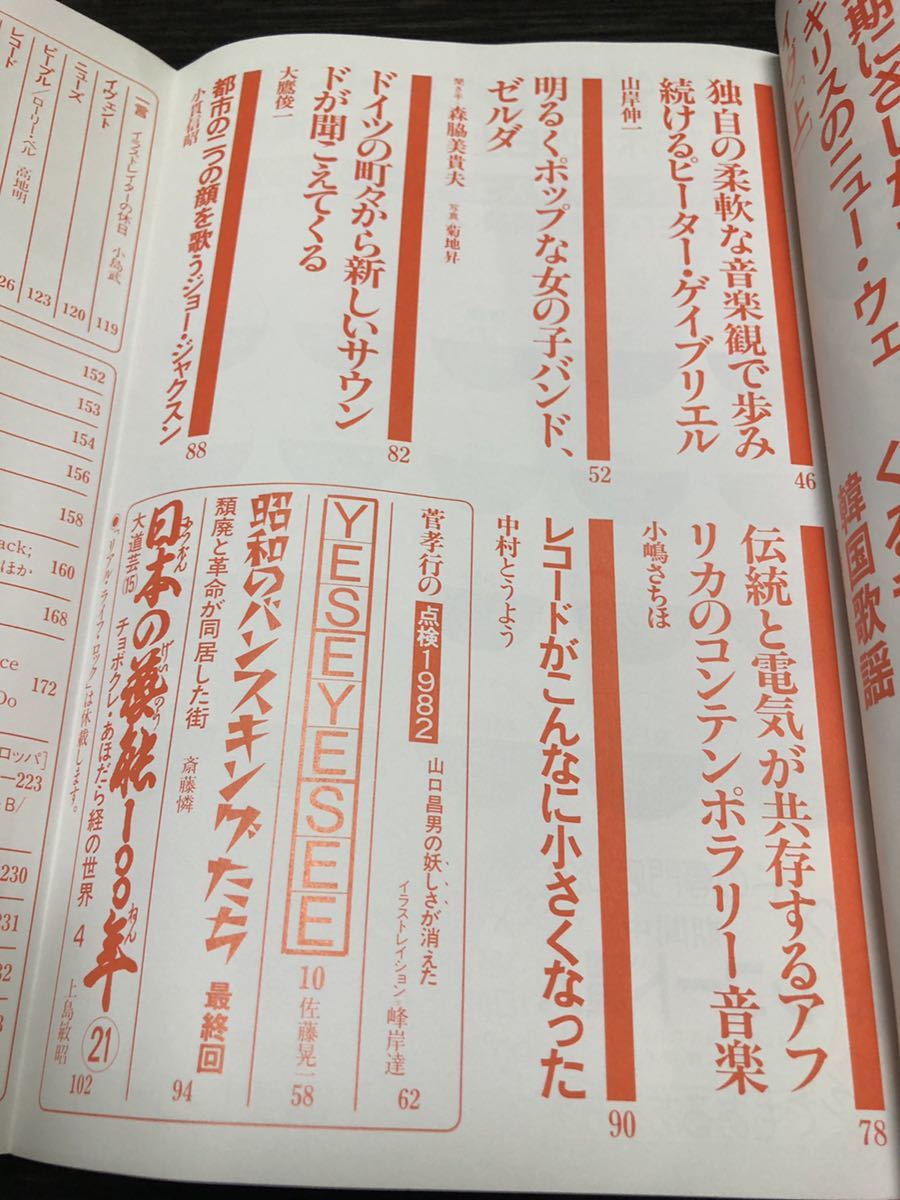 キリスのニュー・ウェ
韓国歌謡
独自の柔軟な音楽観で歩み
続けるピーター・ゲイブリエル
山岸伸一
46
明るくポップな女の子バンド、
ゼルダ
聞き手 森脇美貴夫 写真 菊地昇
52
ドイツの町々から新しいサウン
ドが聞こえてくる
大鷹俊一
82
都市の二つの顔を歌うジョー・ジャクスン
小貫信昭
88
伝統と電気が共存するアフ
リカのコンテンポラリー音楽
小嶋さちほ
78
レコードがこんなに小さくなった
中村とうよう
90
菅孝行の 点検1982
山口昌男の妖しさが消えた
イラストレイション=峰岸達
62
YESEYESEE
10 佐藤晃一
58
昭和のバンスキングたち 最終回
頽廃と革命が同居した街 斎藤憐
94
日本の藝能一〇〇年 21
にっぽん げいのう ねん
大道芸(15) チョボクレ・あほだら経の世界 4 上島敏昭
102
●「リアル・ライフ・ロック」は休載します。
一言 イラストレイターの休日 小島武
119
イヴェント
120
ニューズ
123
ピープル/ローリー・ベル 高地明
26
レコード
152
153
154
156
158
ack;
ほか 160
168
ce
172
Do
ロッパ]
—223
-B/
230
231
32
3